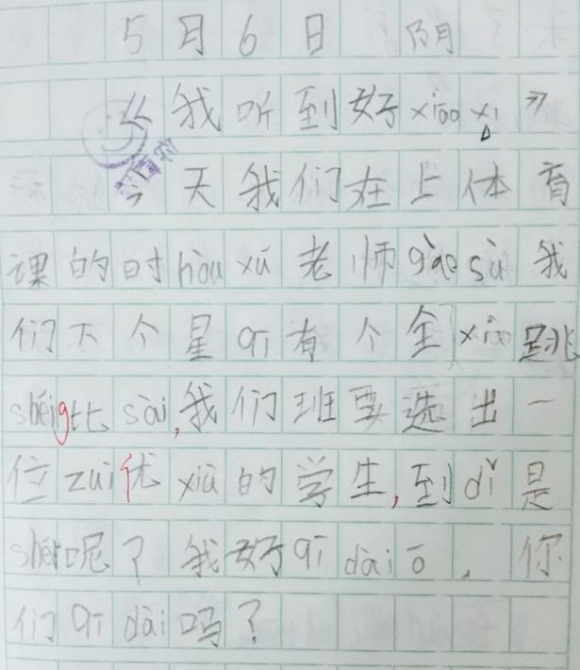 5月6日 阴
《我听到好xiāo xi》
今天我们在上体育
课的时hòu xú老师gào sù我
们下个星qī有个全xiào跳
shéig比sài,我们班要选出一
位zuì优xiù的学生,到dǐ是
shéi呢?我好qī dài ō,你
们qī dài吗?